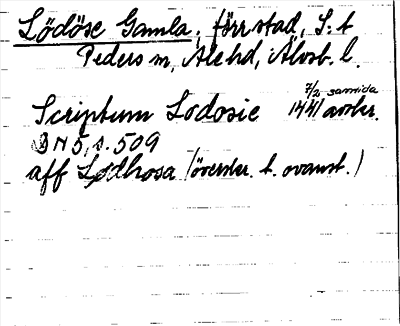 Lödöse Gamla, förr stad, S:t
Peders sn, Ale hd, Älvsb. l.
Scriptum Lodosie 7/2 1441 samtida avskr.
DN 5, s. 509
aff Lødhosa (överskr. t. ovanst.)